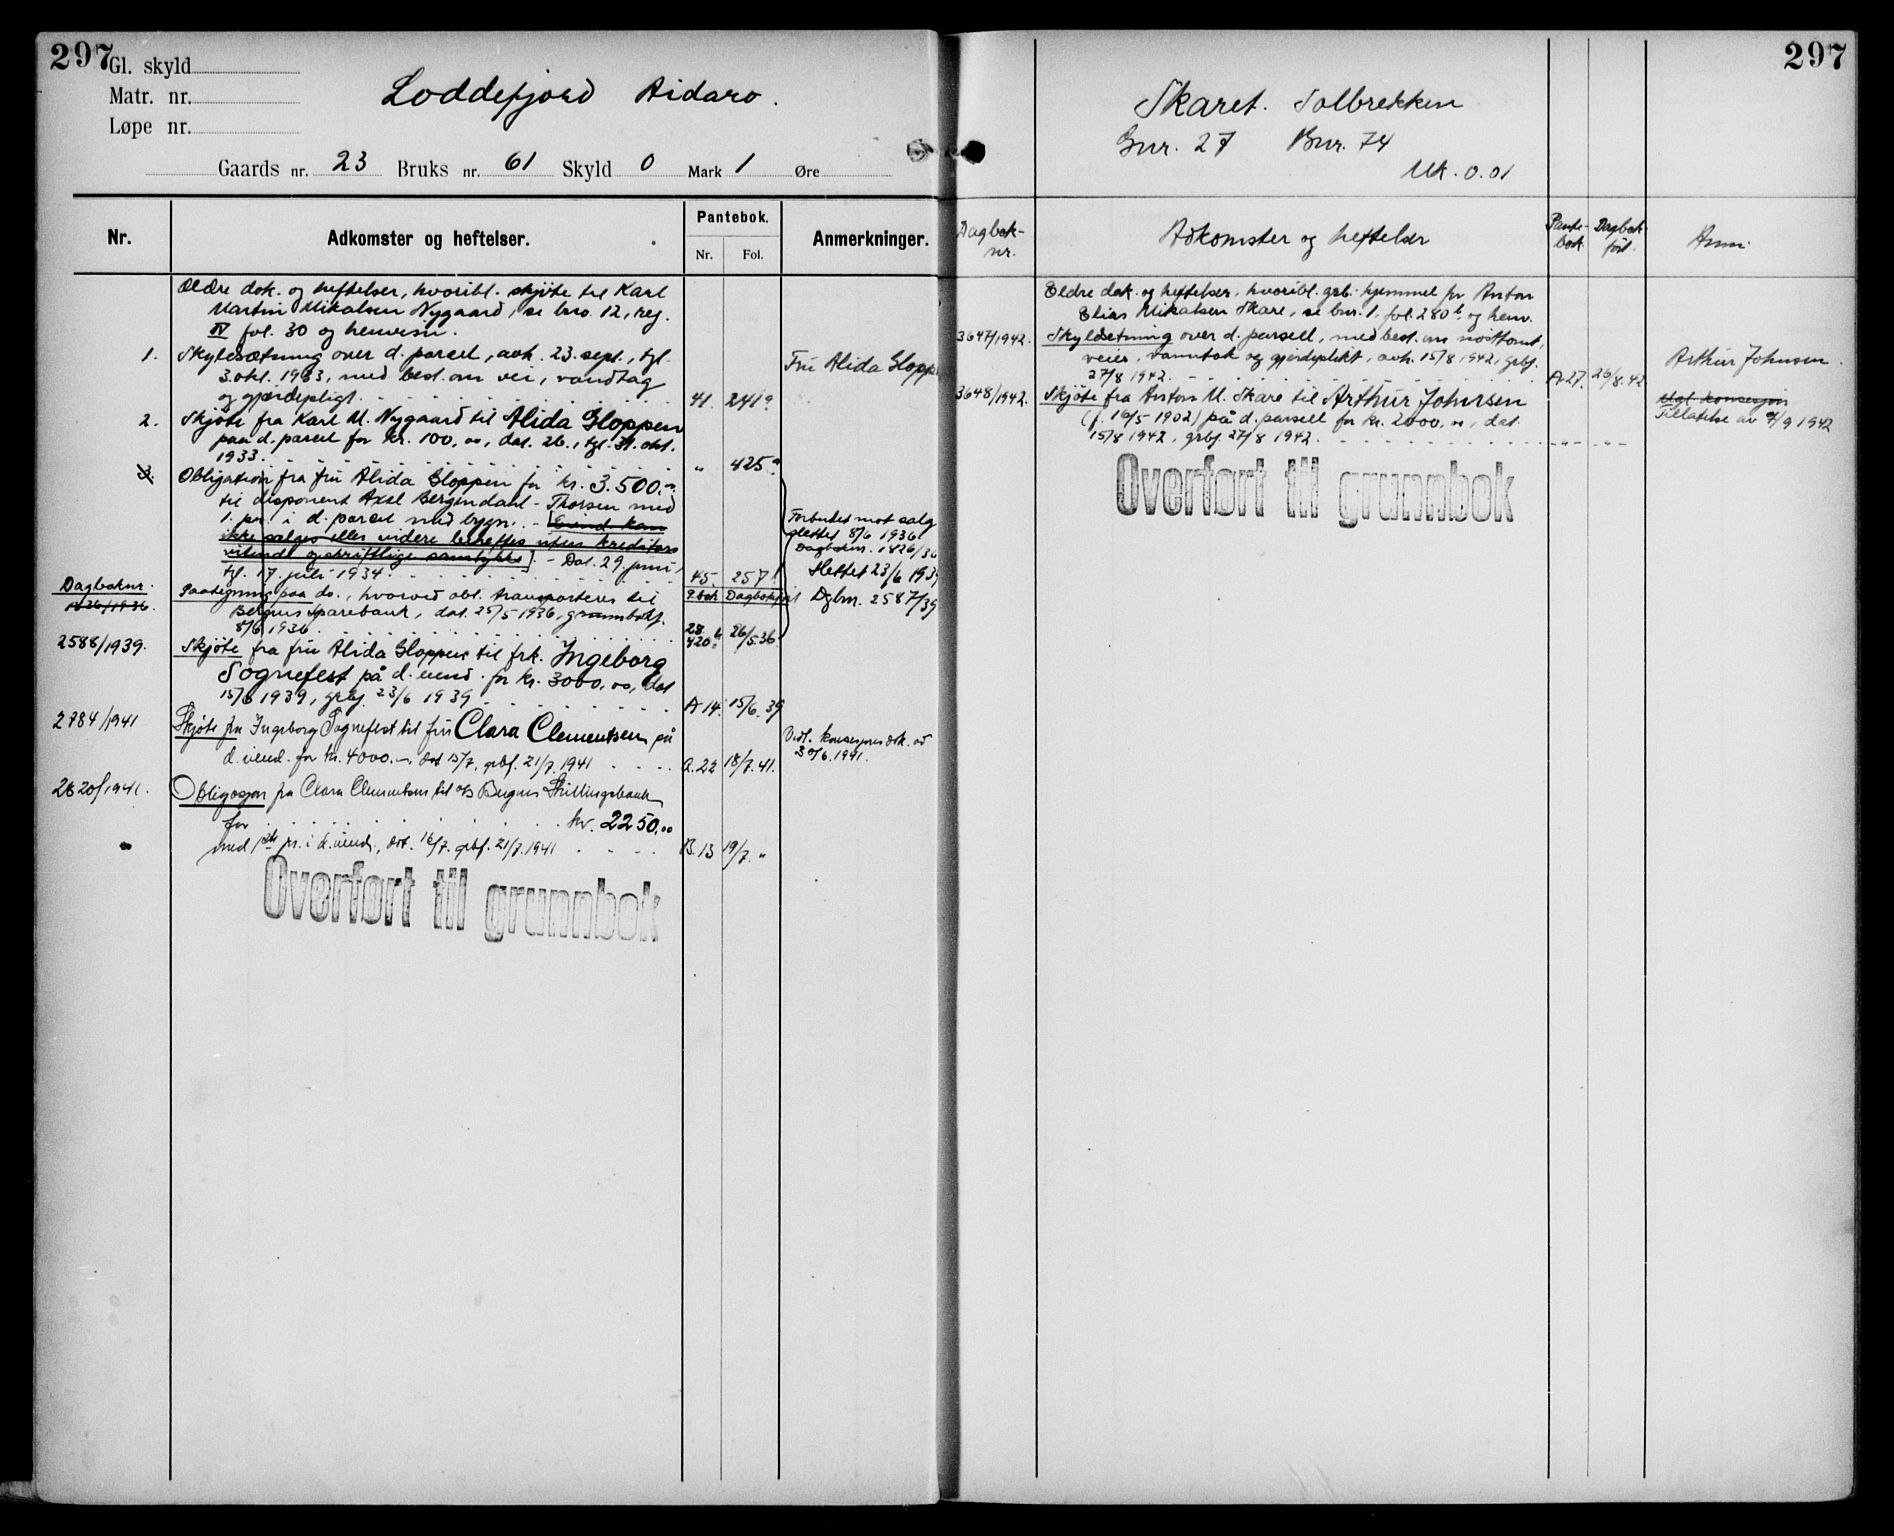 297
Gl. skyld
Matr. nr.
Løpe nr.
Loddefjord Aidaro.
Gaards nr. 23 Bruks nr. 61 Skyld 0 Mark 1 Øre
Nr.
Adkomster og heftelser.
Pantebok.
Nr. Fol.
Anmerkninger.
Ældre dok. og heftelser, hvoribl. skjøte til Karl
Martin Mikalsen Nygaard, se bno. 12, reg.
IV fol. 30 og henvisn.
1. Skyldsætning over d. parcel, avh. 23. sept., tgl.
3. okt. 1933, med best. om vei, vandtag
og gjærdepligt. 41. 241a
Fru Alida Gloppen
2. Skjøte fra Karl M. Nygaard til Alida Gloppen
paa d. parcel for kr. 100,00, dat. 26., tgl. 31. okt.
1933. " 425a
3. Obligation fra fru Alida Gloppen for kr. 3.500,-
til disponent Axel Bergendahl-Thorsen med
1. pr. i d. parcel med bygn. - [Eiend. kan
ikke sælges eller videre beheftes uten kreditors
vitende og skriftlige samtykke]. - Dat. 29. juni,
tgl. 17. juli 1934. 45. 257
Forbudet mot salg
slettet 8/6 1936
Dagboknr. 1826/36
Slettet 23/6 1939
Dgbnr. 2587/39
Dagboknr.
1826/1936.
P.bok Dagbokført
Paategning paa do., hvorved obl. transporteres til
Bergens Sparebank, dat. 25/5 1936, grunnbokf.
8/6 1936 28. 420b 26/5.36
2588/1939. Skjøte fra fru Alida Gloppen til frk. Ingeborg
Sognefest på d. eiend. for kr. 3000,00, dat
15/6 1939, grbf. 23/6 1939 A 14. 15/6.39
2784/1941 Skjøte fra Ingeborg Sognefest til fru Clara Clementsen på
d. eiend. for kr. 4000.-, dat 15/7, grbf. 21/7.1941 A.22 18/7.41.
Vidl. konsesjonsdok. av
30/6.1941.
2820/1941. Obligasjon fra Clara Clementsen til A/S Bergens Skillingsbank
for kr. 2250,00
med 1ste pr. i d. eiend., dat. 16/7. grbf. 21/7.1941 B.13 19/7. "
Overført til grunnbok
297
Skaret. Solbrekken
Gnr. 27 Bnr. 74
Mk. 0.01
Dagbok-
nr.
Adkomster og heftelser
Pante-
bok.
Dagbok-
ført.
Anm.
Eldre dok. og heftelser, hvoribl. grb. hjemmel for Anton
Elias Mikalsen Skare, se bnr. 1, fol. 280b, og henv.
3647/1942. Skyldsetning over d. parsell, med best. om nausttomt,
veier, vanntak og gjerdeplikt, avh. 15/8 1942, grbf.
27/8 1942. A 27. 26/8.42
Arthur Johnsen.
3648/1942. Skjøte fra Anton M. Skare til Arthur Johnsen
(f. 16/5 1902) på d. parsell for kr. 2000,00, dat.
15/8 1942, grbf. 27/8 1942. -"- -"-
Utgl. konsesjon
Tillatelse av 4/9 1942
Overført til grunnbok